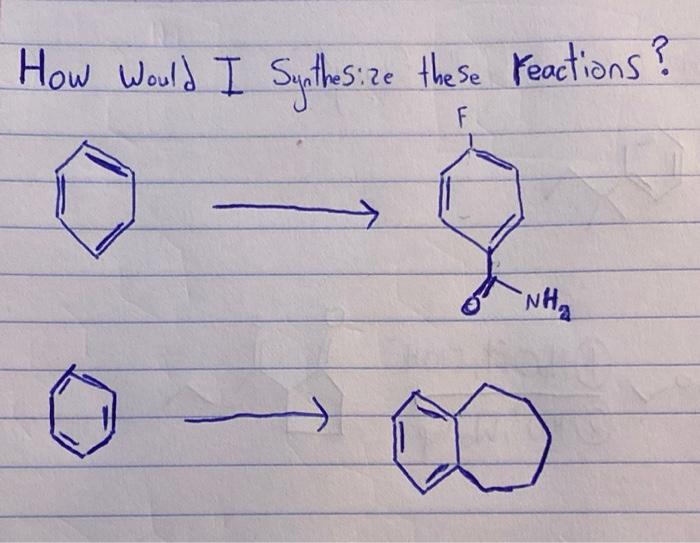 How Would I Synthesize these reactions?
F
O
NH₂